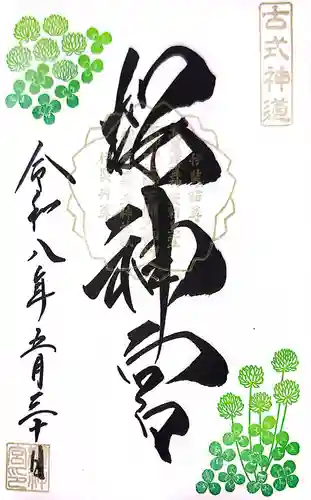 古式神道
櫻神宮
令和八年五月三十日